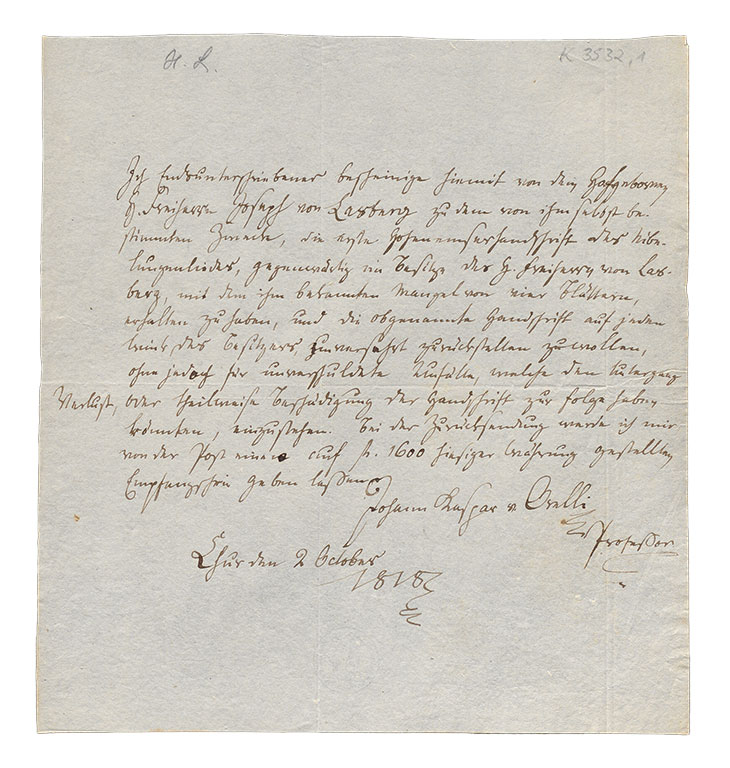 H. L.
K 3532,1
Ich Endsunterschriebener bescheinige hiemit von dem Hochgebornen
H. Freiherrn Joseph von Lasberg zu dem von ihm selbst be-
stimmten Zwecke, die erste Hohenemserhandschrift des Nibe-
lungenliedes, gegenwärtig im Besitze des H. Freiherrn von Las-
berg, mit dem ihm bekannten Mangel von vier Blättern,
erhalten zu haben, und die obgenannte Handschrift auf jeden
Wink des Besitzers, unversehrt zurückstellen zu wollen,
ohne jedoch für unverschuldete Unfälle, welche den Untergang
Verlust, oder theilweise Beschädigung der Handschrift zur Folge haben
könnten, einzustehen. Bei der Zurücksendung werde ich mir
von der Post einen auf fl. 1600 hiesiger Währung gestellten
Empfangschein geben lassen.
Johann Kaspar v. Orelli
Professor
Chur den 2 October
1818